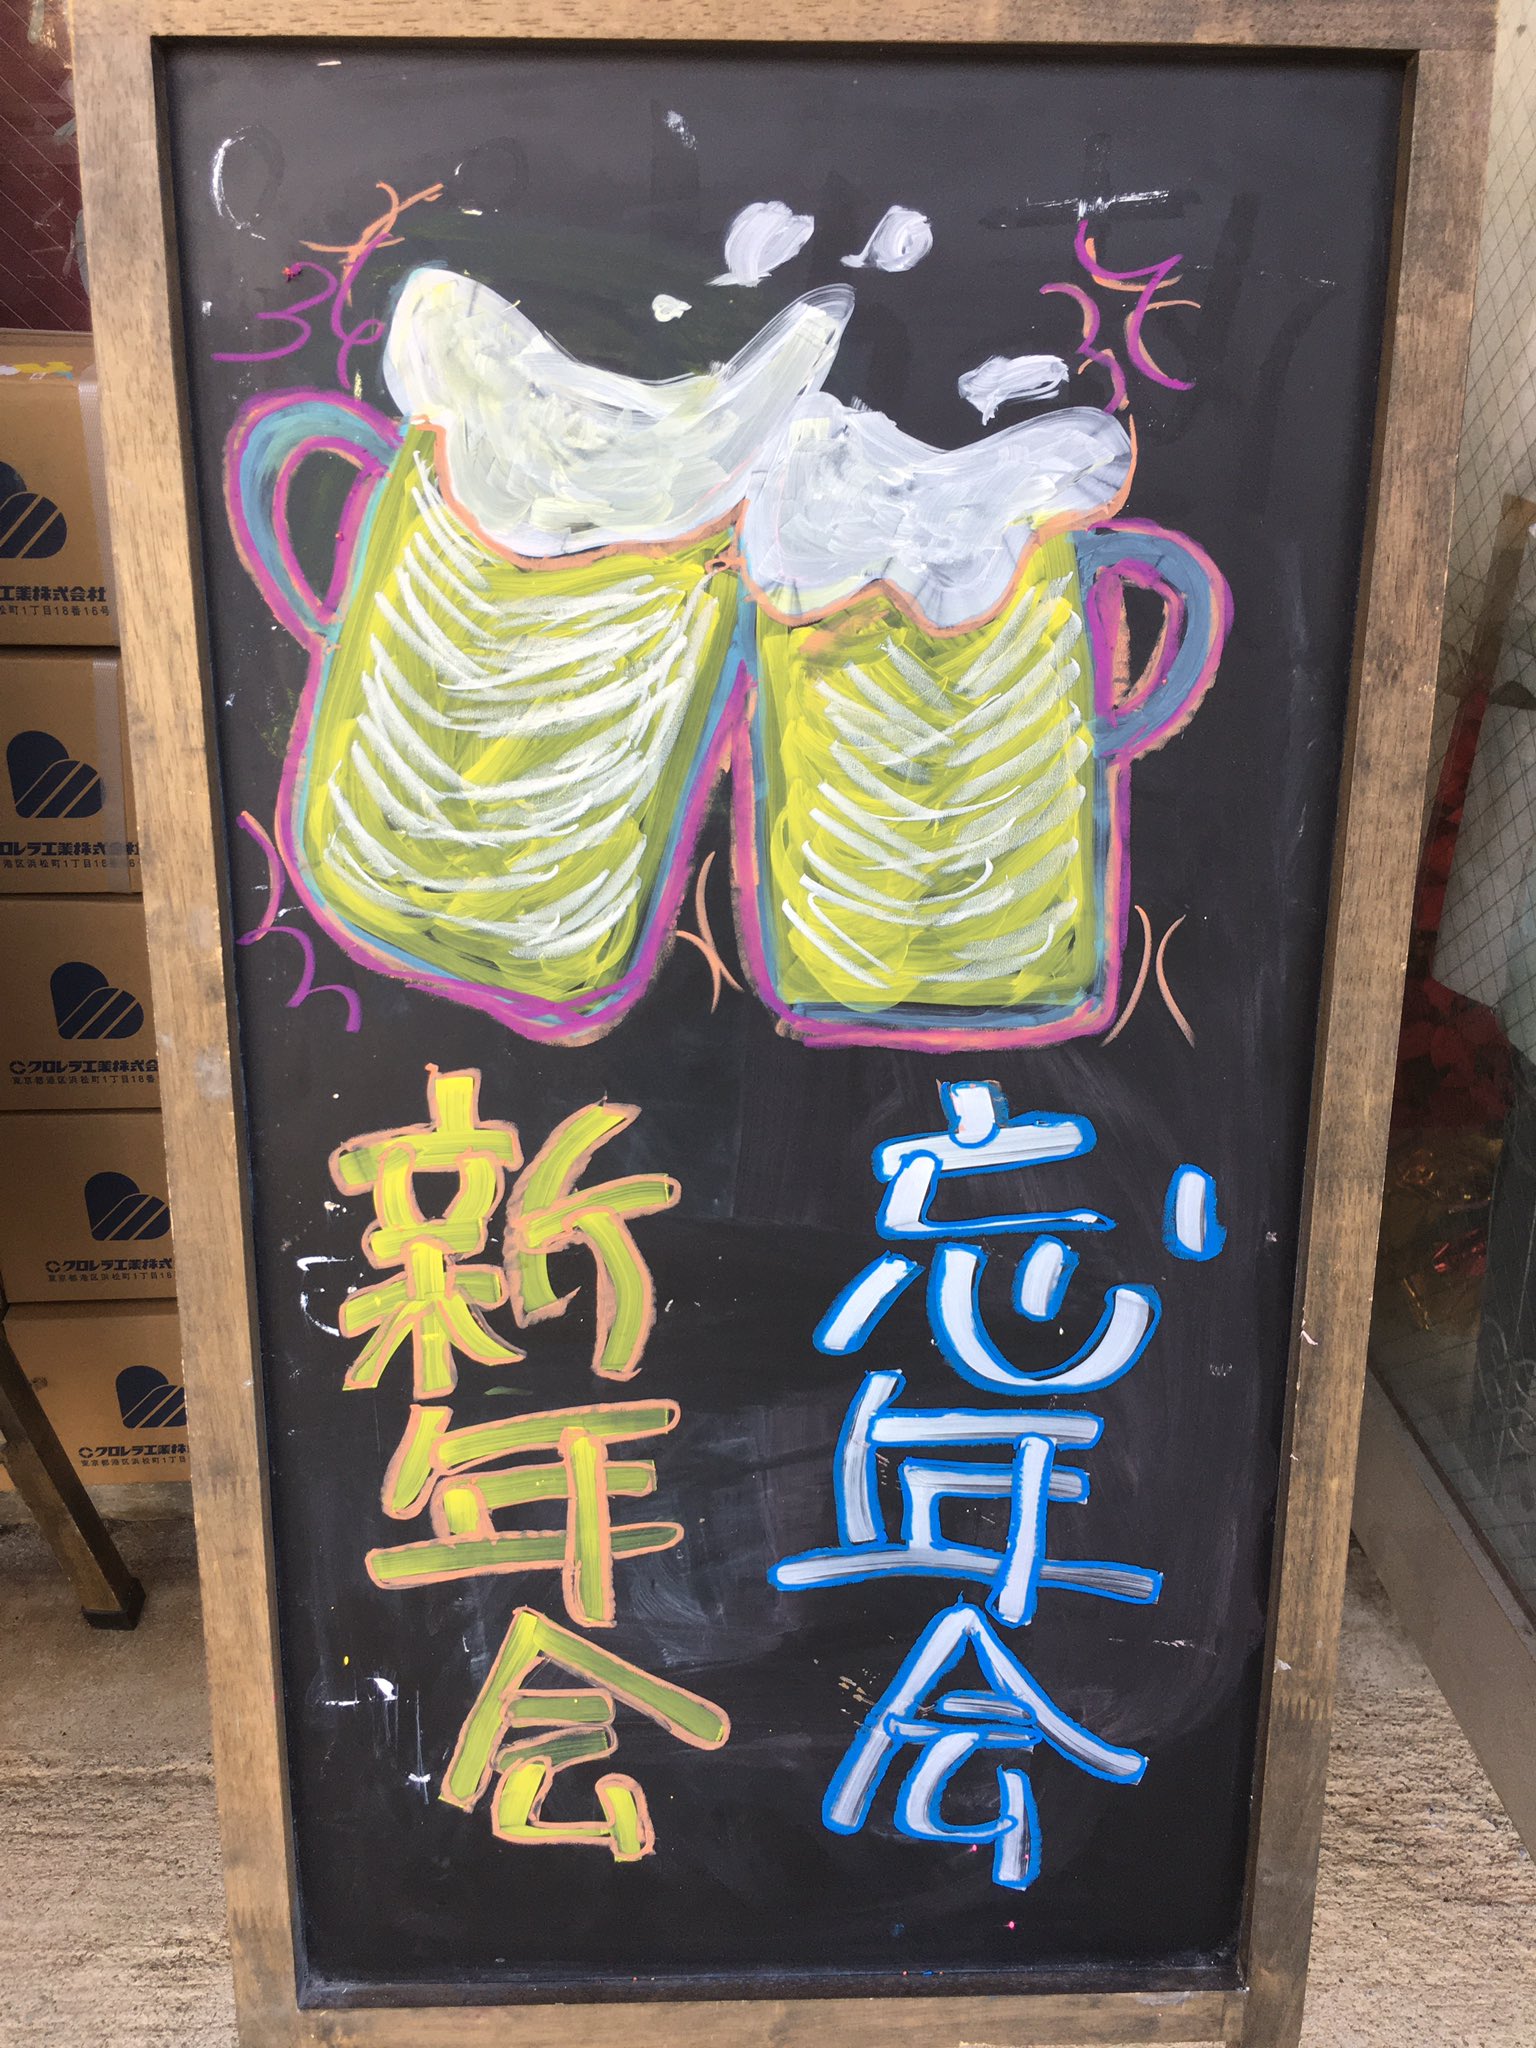 忘年会
新年会
工業株式会社
松町1丁目18番16号
クロレラ工業株式会社
港区浜松町1丁目18
クロレラ工業株式会
東京都港区浜松町1丁目18番
クロレラ工業株式
東京都港区浜松町1丁目18
クロレラ工業株
東京都港区浜松町1丁目